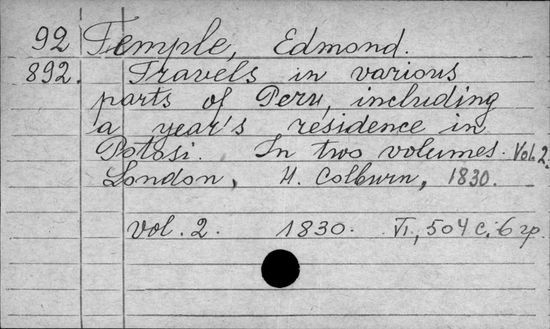 92 Temple, Edmond.
892. Travels in various
parts of Peru, including
a year's residence in
Potosi. In two volumes. Vol. 2.
London, H. Colburn, 1830.
vol. 2. 1830. VI, 504 c. 6 гр.